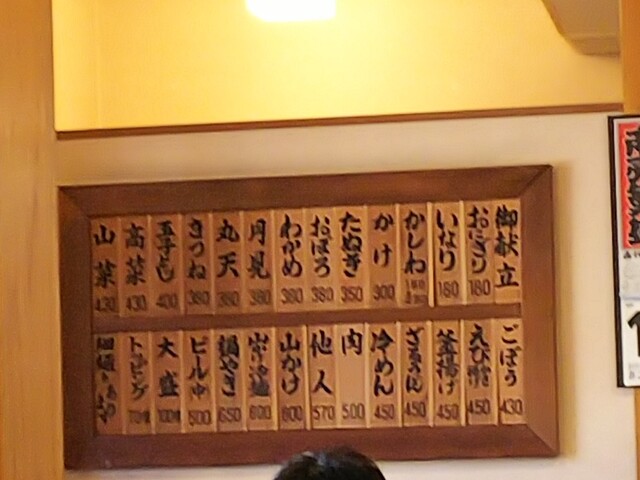 御献立
おにぎり 180
いなり 180
かしわ
かけ 300
たぬき 350
おぼろ 380
わかめ 380
月見 380
丸天 380
きつね 380
玉子とじ 400
高菜 430
山菜 430
ごぼう 430
えび 450
釜揚げ 450
ざるうどん 450
冷めん 450
肉 500
他人 570
山かけ 600
600
鍋やき 650
ビール中 500
大盛 100増
トッピング 70増
細麺もあります